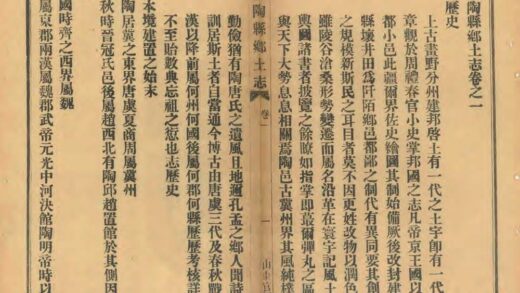 陶縣鄉土志卷之一
歷史
上古畫野分州建邦啓土有一代之土宇卽有一代
章觀於周禮春官小史掌邦國之志凡帝京王國以
都小邑此疆爾界佐史繪圖其制始備厥後改封建
縣壞井田爲阡陌鄉邑都鄙之制代有異同要其創
之規模新斯民之耳目者莫不因更姓改物以潤色
雖陵谷滄桑形勢變遷而屬名沿革在寰宇記風土
輿圖諸書者披覽之餘瞭如指掌卽蕞爾彈丸之區
與天下大勢息息相關焉陶邑古冀州界其風純樸
陶縣鄉土志 卷一 一
勤儉猶有陶唐氏之遺風且地邇孔孟之鄉人聞詩
訓居斯土者自當通今博古由唐虞三代及春秋戰
漢以降前屬何州何國後屬何郡何縣歷歷考核詳
不至貽數典忘祖之愆也志歷史
本境建置之始末
陶居冀之東界唐虞夏商周屬冀州
秋時晉冠氏邑後屬趙西北有陶邱趙置館於其側因
國時齊之西界屬魏
屬東郡兩漢屬魏郡武帝元光中河決館陶明帝時以